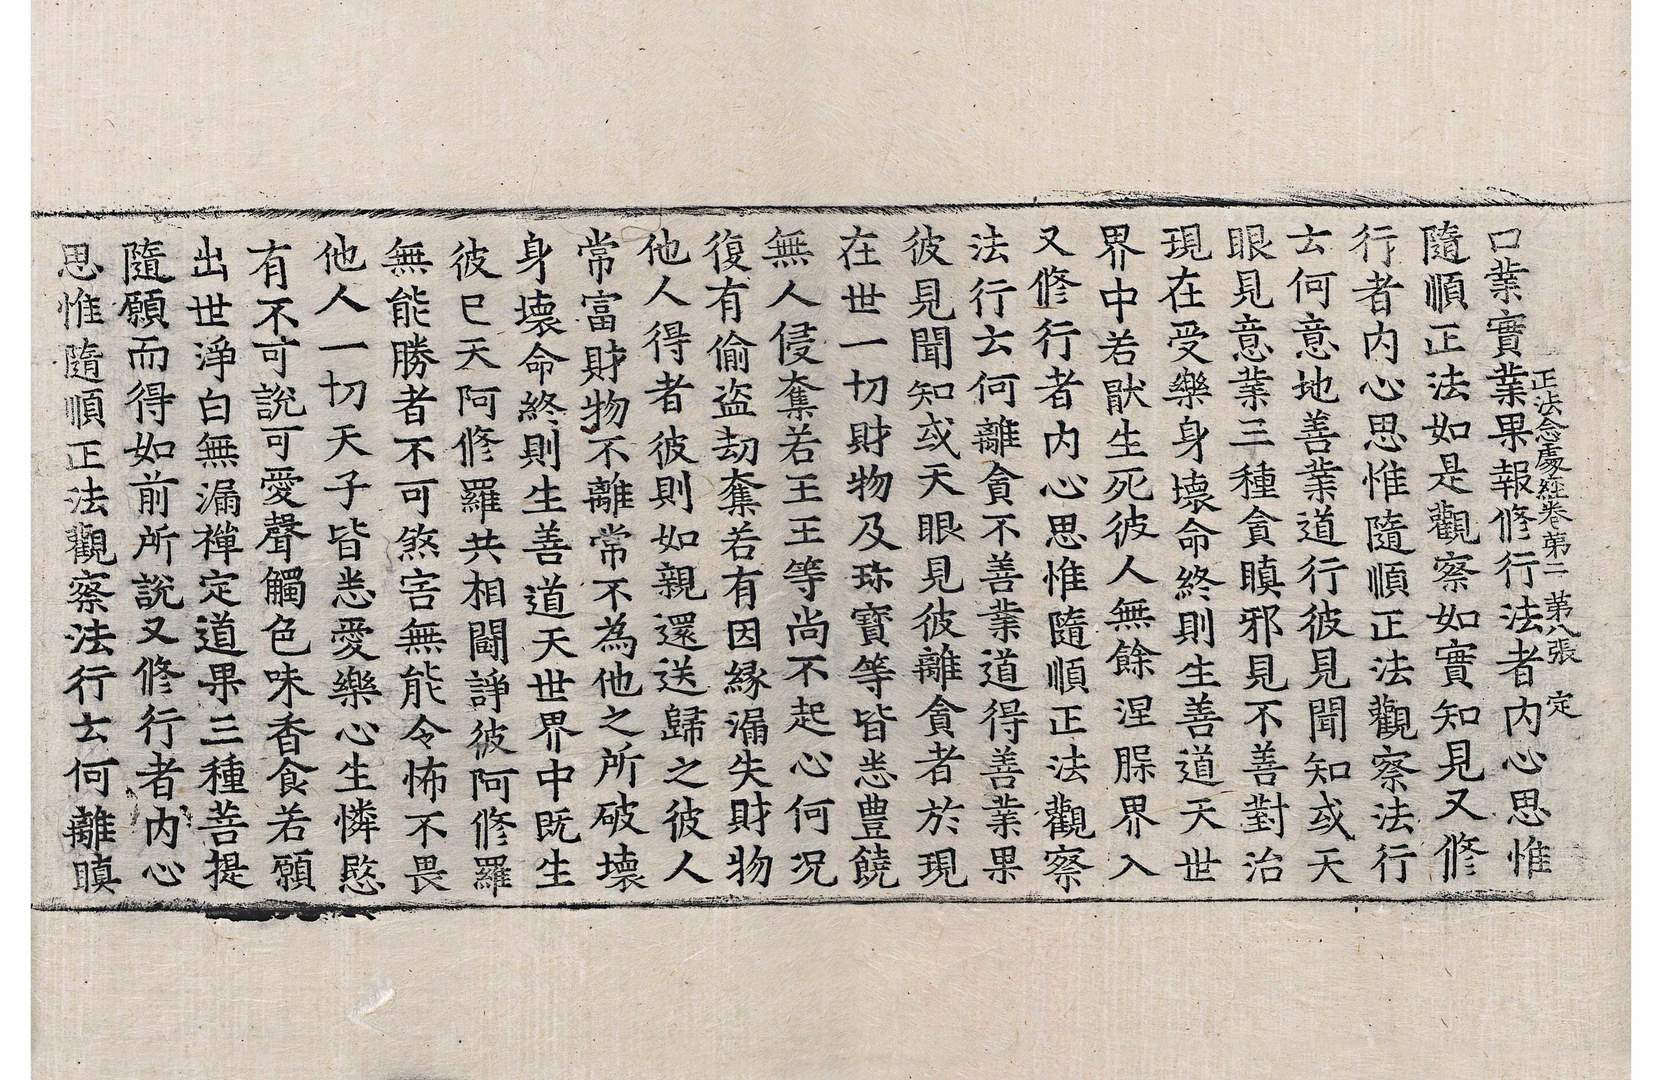 正法念處經卷第二 第八張 定
口業實業果報修行法者內心思惟
隨順正法如是觀察如實知見又修
行者內心思惟隨順正法觀察法行
云何意地善業道行彼見聞知或天
眼見意業三種貪瞋邪見不善對治
現在受樂身壞命終則生善道天世
界中若猒生死彼人無餘涅䐨界入
又修行者內心思惟隨順正法觀察
法行云何離貪不善業道得善業果
彼見聞知或天眼見彼離貪者於現
在世一切財物及珎寶等皆悉豊饒
無人侵奪若王王等尚不起心何況
復有偷盜劫奪若有因緣漏失財物
他人得者彼則如親還送歸之彼人
常富財物不離常不為他之所破壞
身壞命終則生善道天世界中既生
彼已天阿修羅共相鬪諍彼阿修羅
無能勝者不可煞害無能令怖不畏
他人一切天子皆悉愛樂心生憐愍
有不可說可愛聲觸色味香食若願
出世淨白無漏禪定道果三種菩提
隨願而得如前所說又修行者內心
思惟隨順正法觀察法行云何離瞋